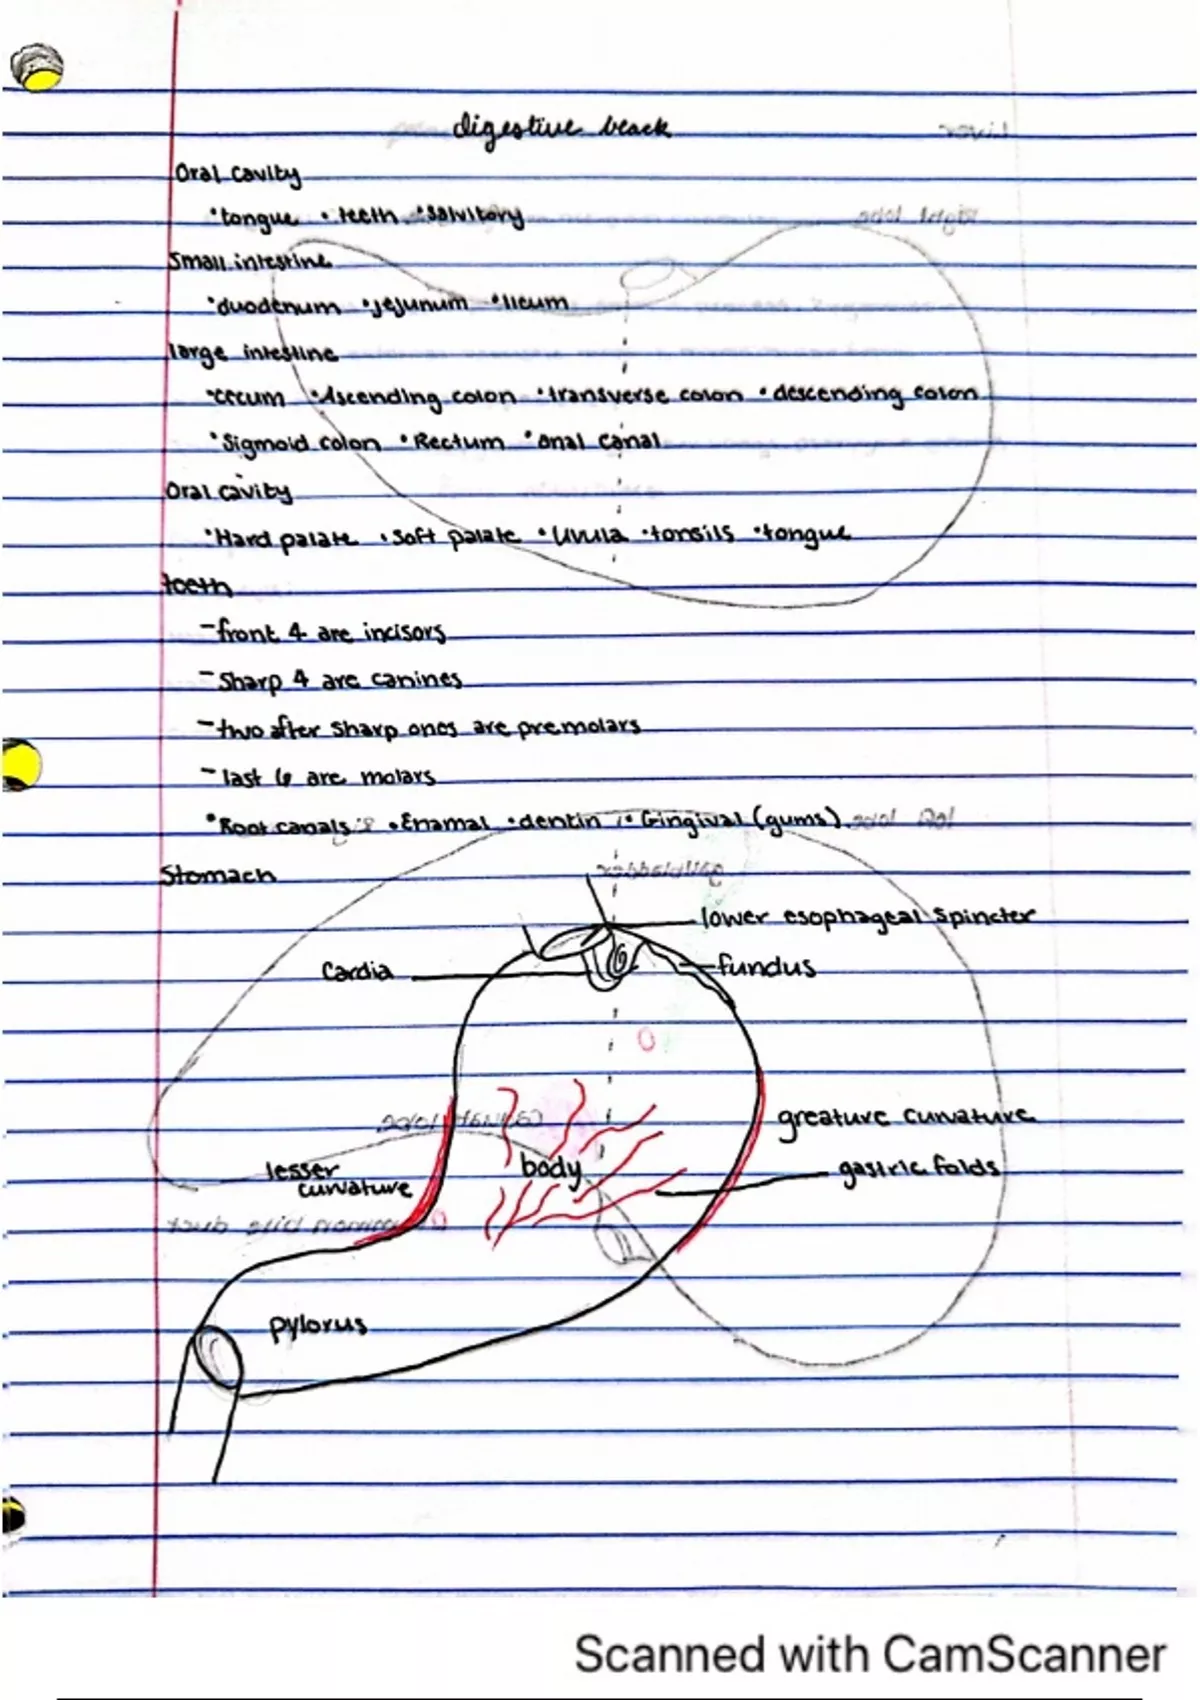 digestive
Oral cavity
•tongue • teeth •Salvitory
Small intestine
•duodenum •jejunum •Ileum
large intestine
•cecum •Ascending colon •transverse colon •descending colon
•Sigmoid colon •Rectum •anal canal
Oral cavity
•Hard palate •Soft palate •Uvula •tonsils •tongue
teeth
-front 4 are incisors
-Sharp 4 are canines
-two after sharp ones are premolars
-last 6 are molars
•Root canals •Enamal •dentin • Gingival (gums)
Stomach
lower esophageal spincter
Cardia
fundus
greature curvature
lesser
curvature
body
gastric folds
pylorus
Liver
Right lobe
gallbladder
common bile duct
Scanned with CamScanner